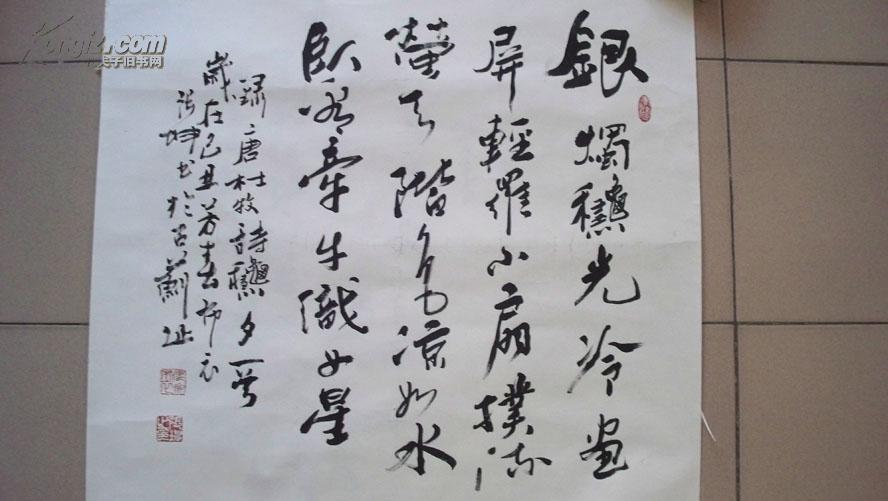 銀燭龝光冷畫
屏輕羅小扇撲流
螢天階夜色涼如水
臥看牽牛織女星
錄唐杜牧詩龝夕一首
歲在己丑芳春布衣
張坤書於古
Kongfz.com
孔夫子旧书网